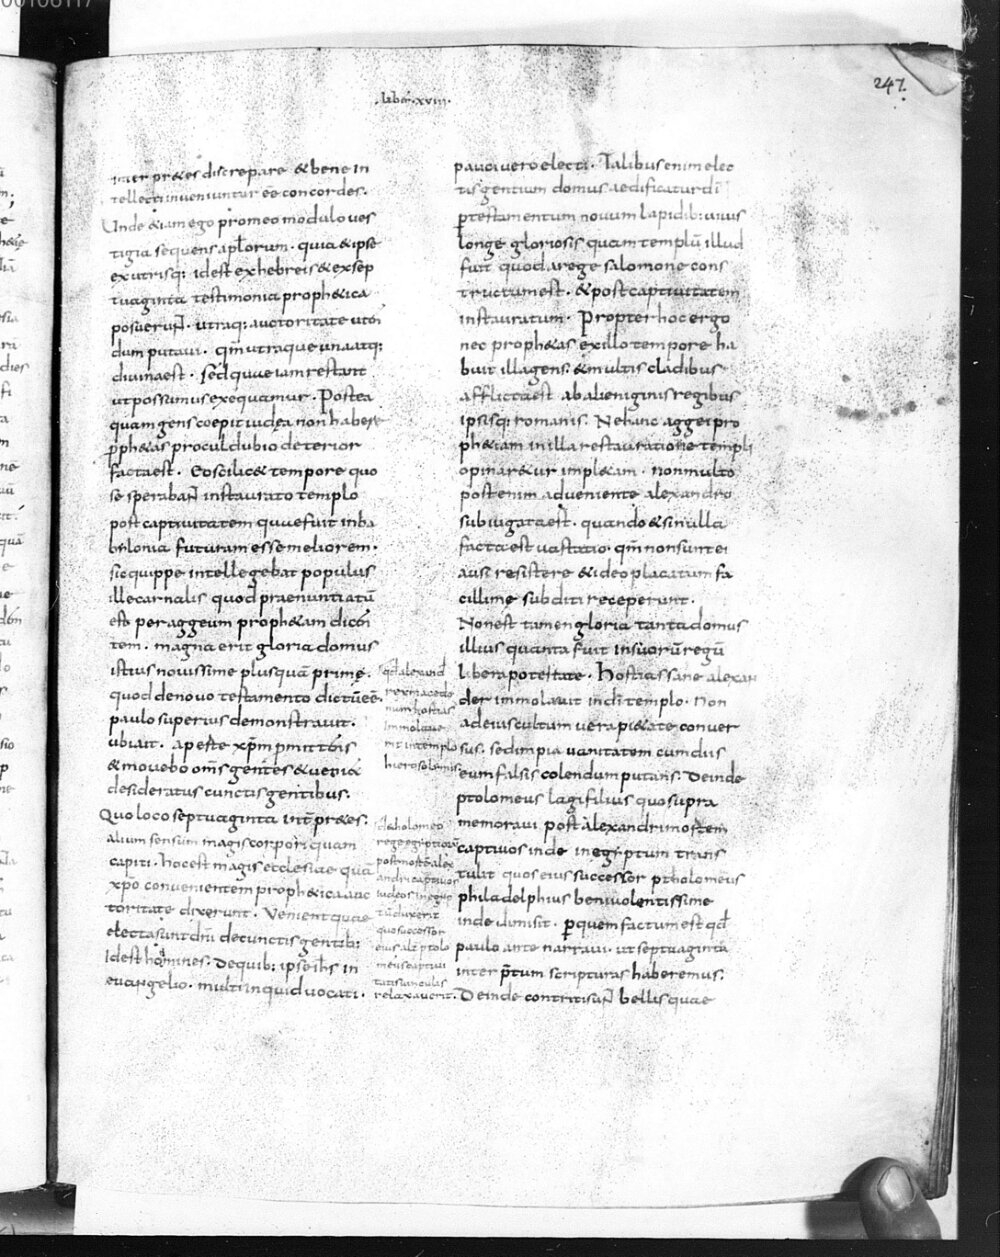 liber xviii
247.
inter p&res discrepare & bene in
tellecti inveniuntur ee concordes.
Unde & iam ego pro meo modulo ves
tigia sequens aplorum. quia & ipse
ex utrisq; id est ex hebreis & ex sep
tuaginta testimonia proph&ica
posuerunt. utraq; auctoritate uten
dum putavi. qm utraque una atq;
divina est. Sed quae iam restant
ut possumus exequamur. Postea
quam gens coepit iudea non habere
proph&as procul dubio deterior
facta est. Eo scilic& tempore quo
se sperabant instaurato templo
post captivitatem quae fuit in ba
bylonia futuram esse meliorem.
sic quippe intellegebat populus
ille carnalis quod praenuntiatu
est per aggeum proph&am dicen
tem. magna erit gloria domus
istius novissime plusqua prime.
quod de novo testamento dictu ee
paulo superius demonstravit.
ubi ait. aperte xpm pmittens
& movebo oms gentes & veni&
desideratus cunctis gentibus.
Quo loco septuaginta intpr&es.
alium sensum magis corpori quam
capiti. hoc est magis ecclesiae qua
xpo convenientem proph&ica auc
toritate dixerunt. Venient quae
electa sunt dni de cunctis gentib;
id est homines. De quib; ipse ihs in
euangelio. multi inquid vocati.
pauci vero electi. Talibus enim elec
tis gentium domus aedificatur di
p testamentum novum lapidib; vivis
longe gloriosis quam templu illud
fuit quod a rege salomone cons
tructum est. & post captivitatem
instauratum. Propter hoc ergo
nec proph&as ex illo tempore ha
buit illa gens. & multis cladibus
afflicta est ab alieniginis regibus
ipsisq; romanis. Ne hanc aggei pro
ph&iam in illa restauratione templi
opinar&ur impl&am. non multo
post enim adveniente alexandro
subiugata est. quando & si nulla
facta est vastatio. qm non sunt ei
ausi resistere & ideo placatum fa
cillime subditi receperunt.
Non est tamen gloria tanta domus
illius quanta fuit in suoru regu
libera potestate. Hostias sane alexan
der immolavit in di templo. Non
ad eius cultum vera pi&ate conver
sus. sed impia vanitatem cum diis
eum falsis colendum putans. Deinde
ptolomeus lagi filius quo supra
memoravi post alexandri mortem
captivos inde in egyptum trans
tulit quos eius successor ptholomeus
philadelphius benivolentissime
inde dimisit. p quem factum est qd
paulo ante narravi. ut septuaginta
interprtum scripturas haberemus.
Deinde contriti sunt bellis quae
qd alexand
rex macedo
num hostias
immolave
rit in templo
hierosolimis
de ptholomeo
rege egiptioru
post morte alex
andri captivos
iudeos in egip
tu duxerit
quo successor
eius alt ptolo
meus captivi
relaxaverit.